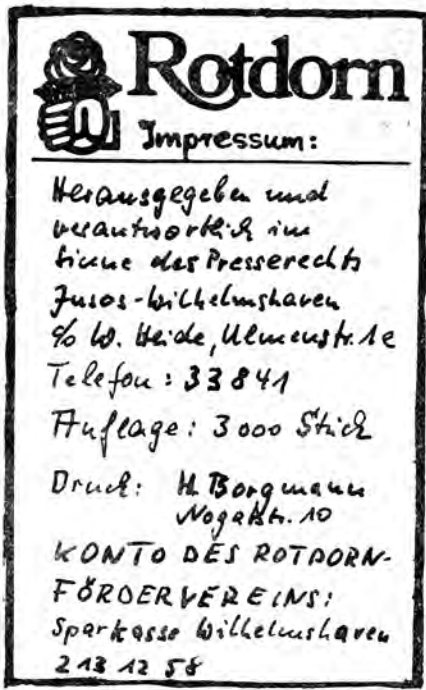 Rotdorn
Impressum:
Herausgegeben und
verantwortlich im
Sinne des Presserechts
Jusos-Wilhelmshaven
c/o W. Heide, Ulmenstr. 1e
Telefon: 33841
Auflage: 3000 Stück
Druck: H. Borgmann
Nogatstr. 10
KONTO DES ROTDORN-
FÖRDERVEREINS:
Sparkasse Wilhelmshaven
213 12 58